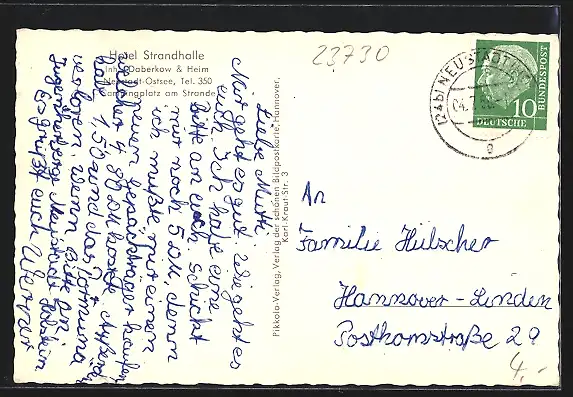 Hotel Strandhalle
Inh. Daberkow & Heim
Neustadt-Ostsee, Tel. 350
Campingplatz am Strande
23730
Liebe Mutti.
Mir geht es gut. Wie geht es
euch. Ich habe eine
Bitte an euch. Schickt
mir noch 5 DM, denn
ich mußte mir einen
neuen Gepäckträger kaufen
welcher 4,80 DM kostete. Außerdem
hat 1,50 und das
verloren. wenn Bitte an
Jugendherberge Neustadt Holstein
Es grüßt euch Werner
Pikkolo-Verlag, Verlag der schönen Bildpostkarte, Hannover,
Karl-Kraut-Str. 3
(24b) NEUSTADT
04.7.
e
10
DEUTSCHE
BUNDESPOST
An
Familie Hülscher
Hannover-Linden
Posthornstraße 29
4,-